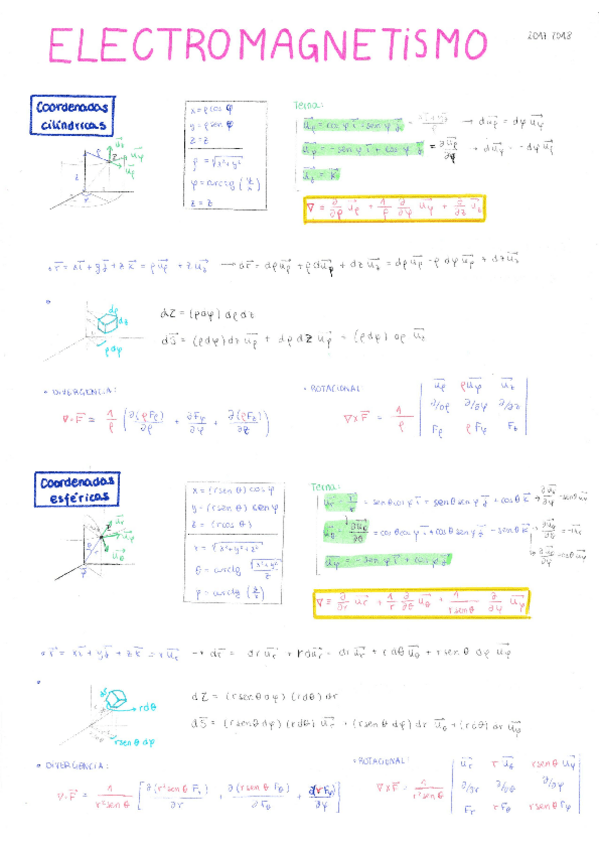 ELECTROMAGNETISMO
2017 2018
Coordenadas cilíndricas
x = ρ cos φ
y = ρ sen φ
z = z
ρ = √(x²+y²)
φ = arctg (y/x)
z = z
Terna:
u⃗ρ = cos φ i⃗ + sen φ j⃗ → du⃗ρ = dφ u⃗φ
u⃗φ = -sen φ i⃗ + cos φ j⃗ = ∂u⃗ρ/∂φ → du⃗φ = -dφ u⃗ρ
u⃗z = k⃗
∇ ≡ ∂/∂ρ u⃗ρ + 1/ρ ∂/∂φ u⃗φ + ∂/∂z u⃗z
r⃗ = x i⃗ + y j⃗ + z k⃗ = ρ u⃗ρ + z u⃗z → dr⃗ = dρ u⃗ρ + ρ du⃗ρ + dz u⃗z = dρ u⃗ρ + ρ dφ u⃗φ + dz u⃗z
dρ
dz
ρdφ
dZ = (ρdφ) dρ dz
dS⃗ = (ρdφ) dz u⃗ρ + dρ dz u⃗φ + (ρdφ) dρ u⃗z
• DIVERGENCIA:
∇·F⃗ = 1/ρ (∂(ρFρ)/∂ρ + ∂Fφ/∂φ + ∂(ρFz)/∂z)
• ROTACIONAL
∇×F⃗ = 1/ρ
u⃗ρ ρu⃗φ u⃗z
∂/∂ρ ∂/∂φ ∂/∂z
Fρ ρFφ Fz
Coordenadas esféricas
x = (r sen θ) cos φ
y = (r sen θ) sen φ
z = (r cos θ)
r = √(x²+y²+z²)
θ = arctg √(x²+y²)/z
φ = arctg
Terna:
u⃗r = r⃗/r = sen θ cos φ i⃗ + sen θ sen φ j⃗ + cos θ k⃗
u⃗θ = ∂u⃗r/∂θ = cos θ cos φ i⃗ + cos θ sen φ j⃗ - sen θ k⃗
u⃗φ = -sen φ i⃗ + cos φ j⃗
∇ ≡ ∂/∂r u⃗r + 1/r ∂/∂θ u⃗θ + 1/(r sen θ) ∂/∂φ u⃗φ
r⃗ = x i⃗ + y j⃗ + z k⃗ = r u⃗r → dr⃗ = dr u⃗r + r du⃗r = dr u⃗r + r dθ u⃗θ + r sen θ dφ u⃗φ
dr
rdθ
rsenθ dφ
dZ = (r sen θ dφ) (r dθ) dr
dS⃗ = (r sen θ dφ) (r dθ) u⃗r + (r sen θ dφ) dr u⃗θ + (r dθ) dr u⃗φ
• DIVERGENCIA:
∇·F⃗ = 1/(r² sen θ) [∂(r² sen θ Fr)/∂r + ∂(r sen θ Fθ)/∂Fθ + ∂(r Fφ)/∂φ]
• ROTACIONAL:
∇×F⃗ = 1/(r² sen θ)
u⃗r r u⃗θ r sen θ u⃗φ
∂/∂r ∂/∂θ ∂/∂φ
Fr r Fθ r sen θ Fφ